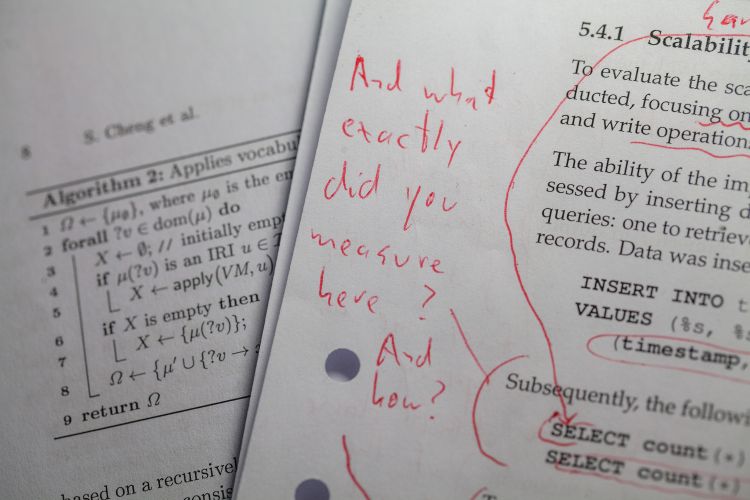 8 S. Cheng et al.
Algorithm 2: Applies
1 Ω ← {μ∅}, where μ∅ is the
2 forall ?v ∈ dom(μ) do
3 X ← ∅; // initially
4 if μ(?v) is an IRI u ∈
5 X ← apply(VM, u)
6 if X is empty then
7 X ← {μ(?v)};
8 Ω ← {μ' ∪ {?v →
9 return Ω
based on a
And what
exactly
did you
measure
here ?
And
how?
5.4.1 Scalability
To evaluate the
ducted, focusing on
and write operation
The ability of the
sessed by inserting
queries: one to
records. Data was
INSERT INTO
VALUES (%s,
(timestamp,
Subsequently, the
SELECT count(*)
SELECT count(*)